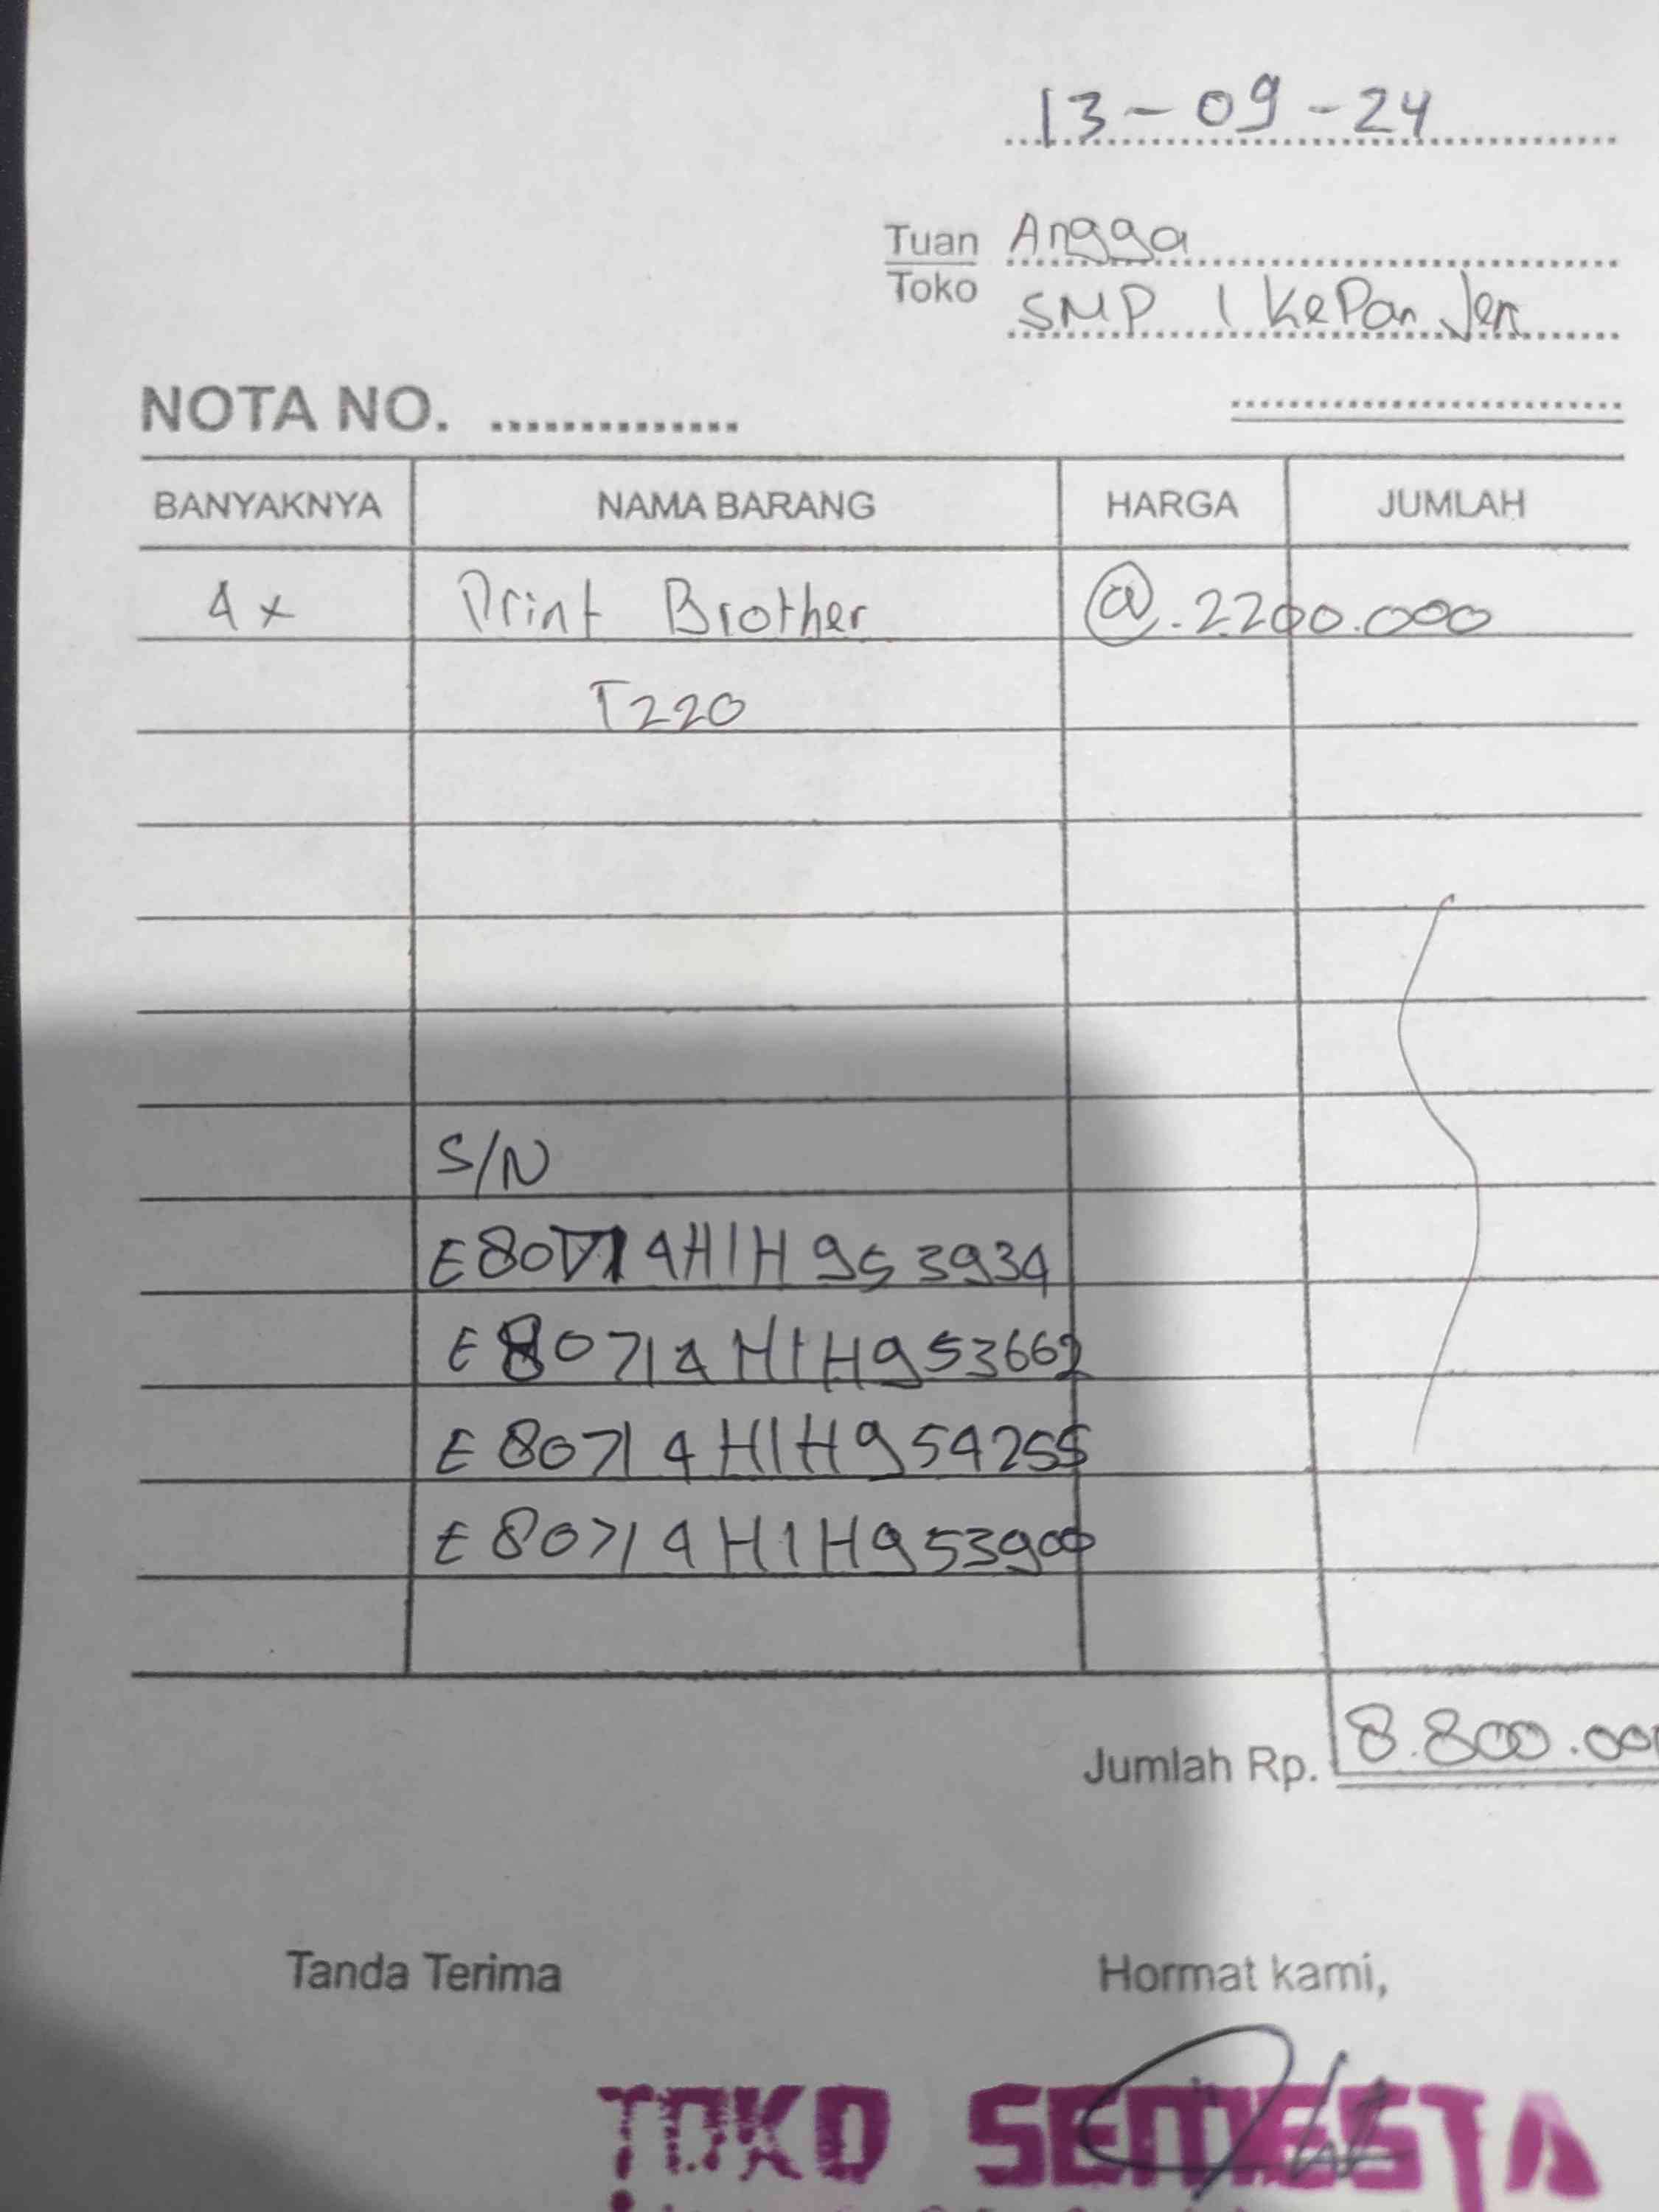 13-09-24
Tuan Angga
Toko SMP 1 Kepanjen
NOTA NO. ..............
BANYAKNYA NAMA BARANG HARGA JUMLAH
4x Print Brother @.2200.000
T220
S/N
E80714H1H953934
E80714H1H953662
E80714H1H954255
E80714H1H953900
Jumlah Rp. 8.800.00
Tanda Terima Hormat kami,
TOKO SEMESTA